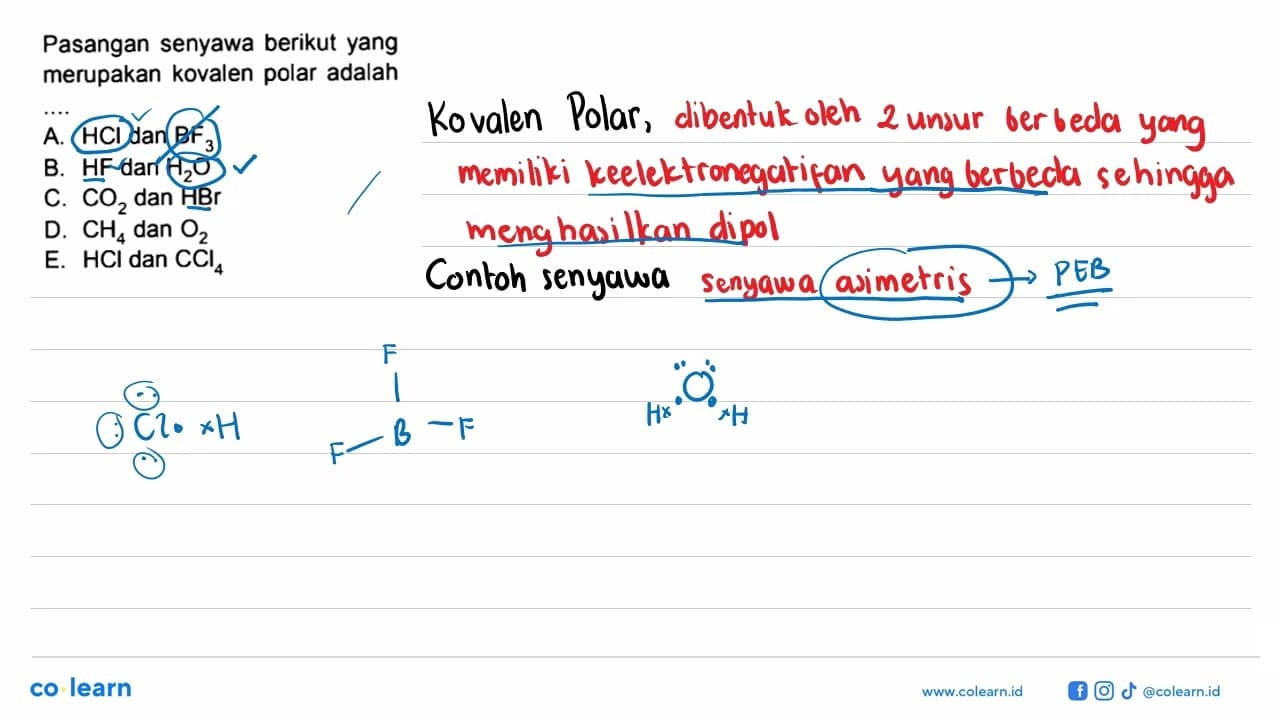 Pasangan senyawa berikut yang
merupakan kovalen polar adalah
....
A. HCl dan BF3
B. HF dan H2O
C. CO2 dan HBr
D. CH4 dan O2
E. HCl dan CCl4
Kovalen Polar, dibentuk oleh 2 unsur berbeda yang
memiliki keelektronegatifan yang berbeda sehingga
menghasilkan dipol
Contoh senyawa senyawa asimetris → PEB
F
Cl × H
F — B — F
O
H× ×H
co learn
www.colearn.id @colearn.id